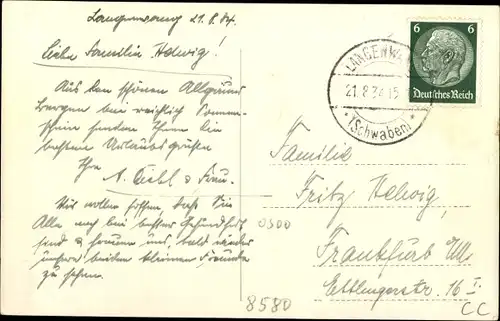 Langenwang 21.8.34.
Liebe Familie Helwig!
Aus den schönen Allgäuer
Bergen bei reichlich Sonnen-
schein senden Ihnen die
besten Urlaubsgrüße
Ihre
A. Seibl & Frau.
Wir wollen hoffen daß Sie
Alle noch bei bester Gesundheit
sind & freuen uns, bald wieder
unsere beiden kleinen Freunde
zu sehen.
6 6
Deutsches Reich
LANGENWA
21.8.34.15
(Schwaben)
Familie
Fritz Helwig,
Frankfurt
Ettlingerstr. 16 I.
0300
8580
CC